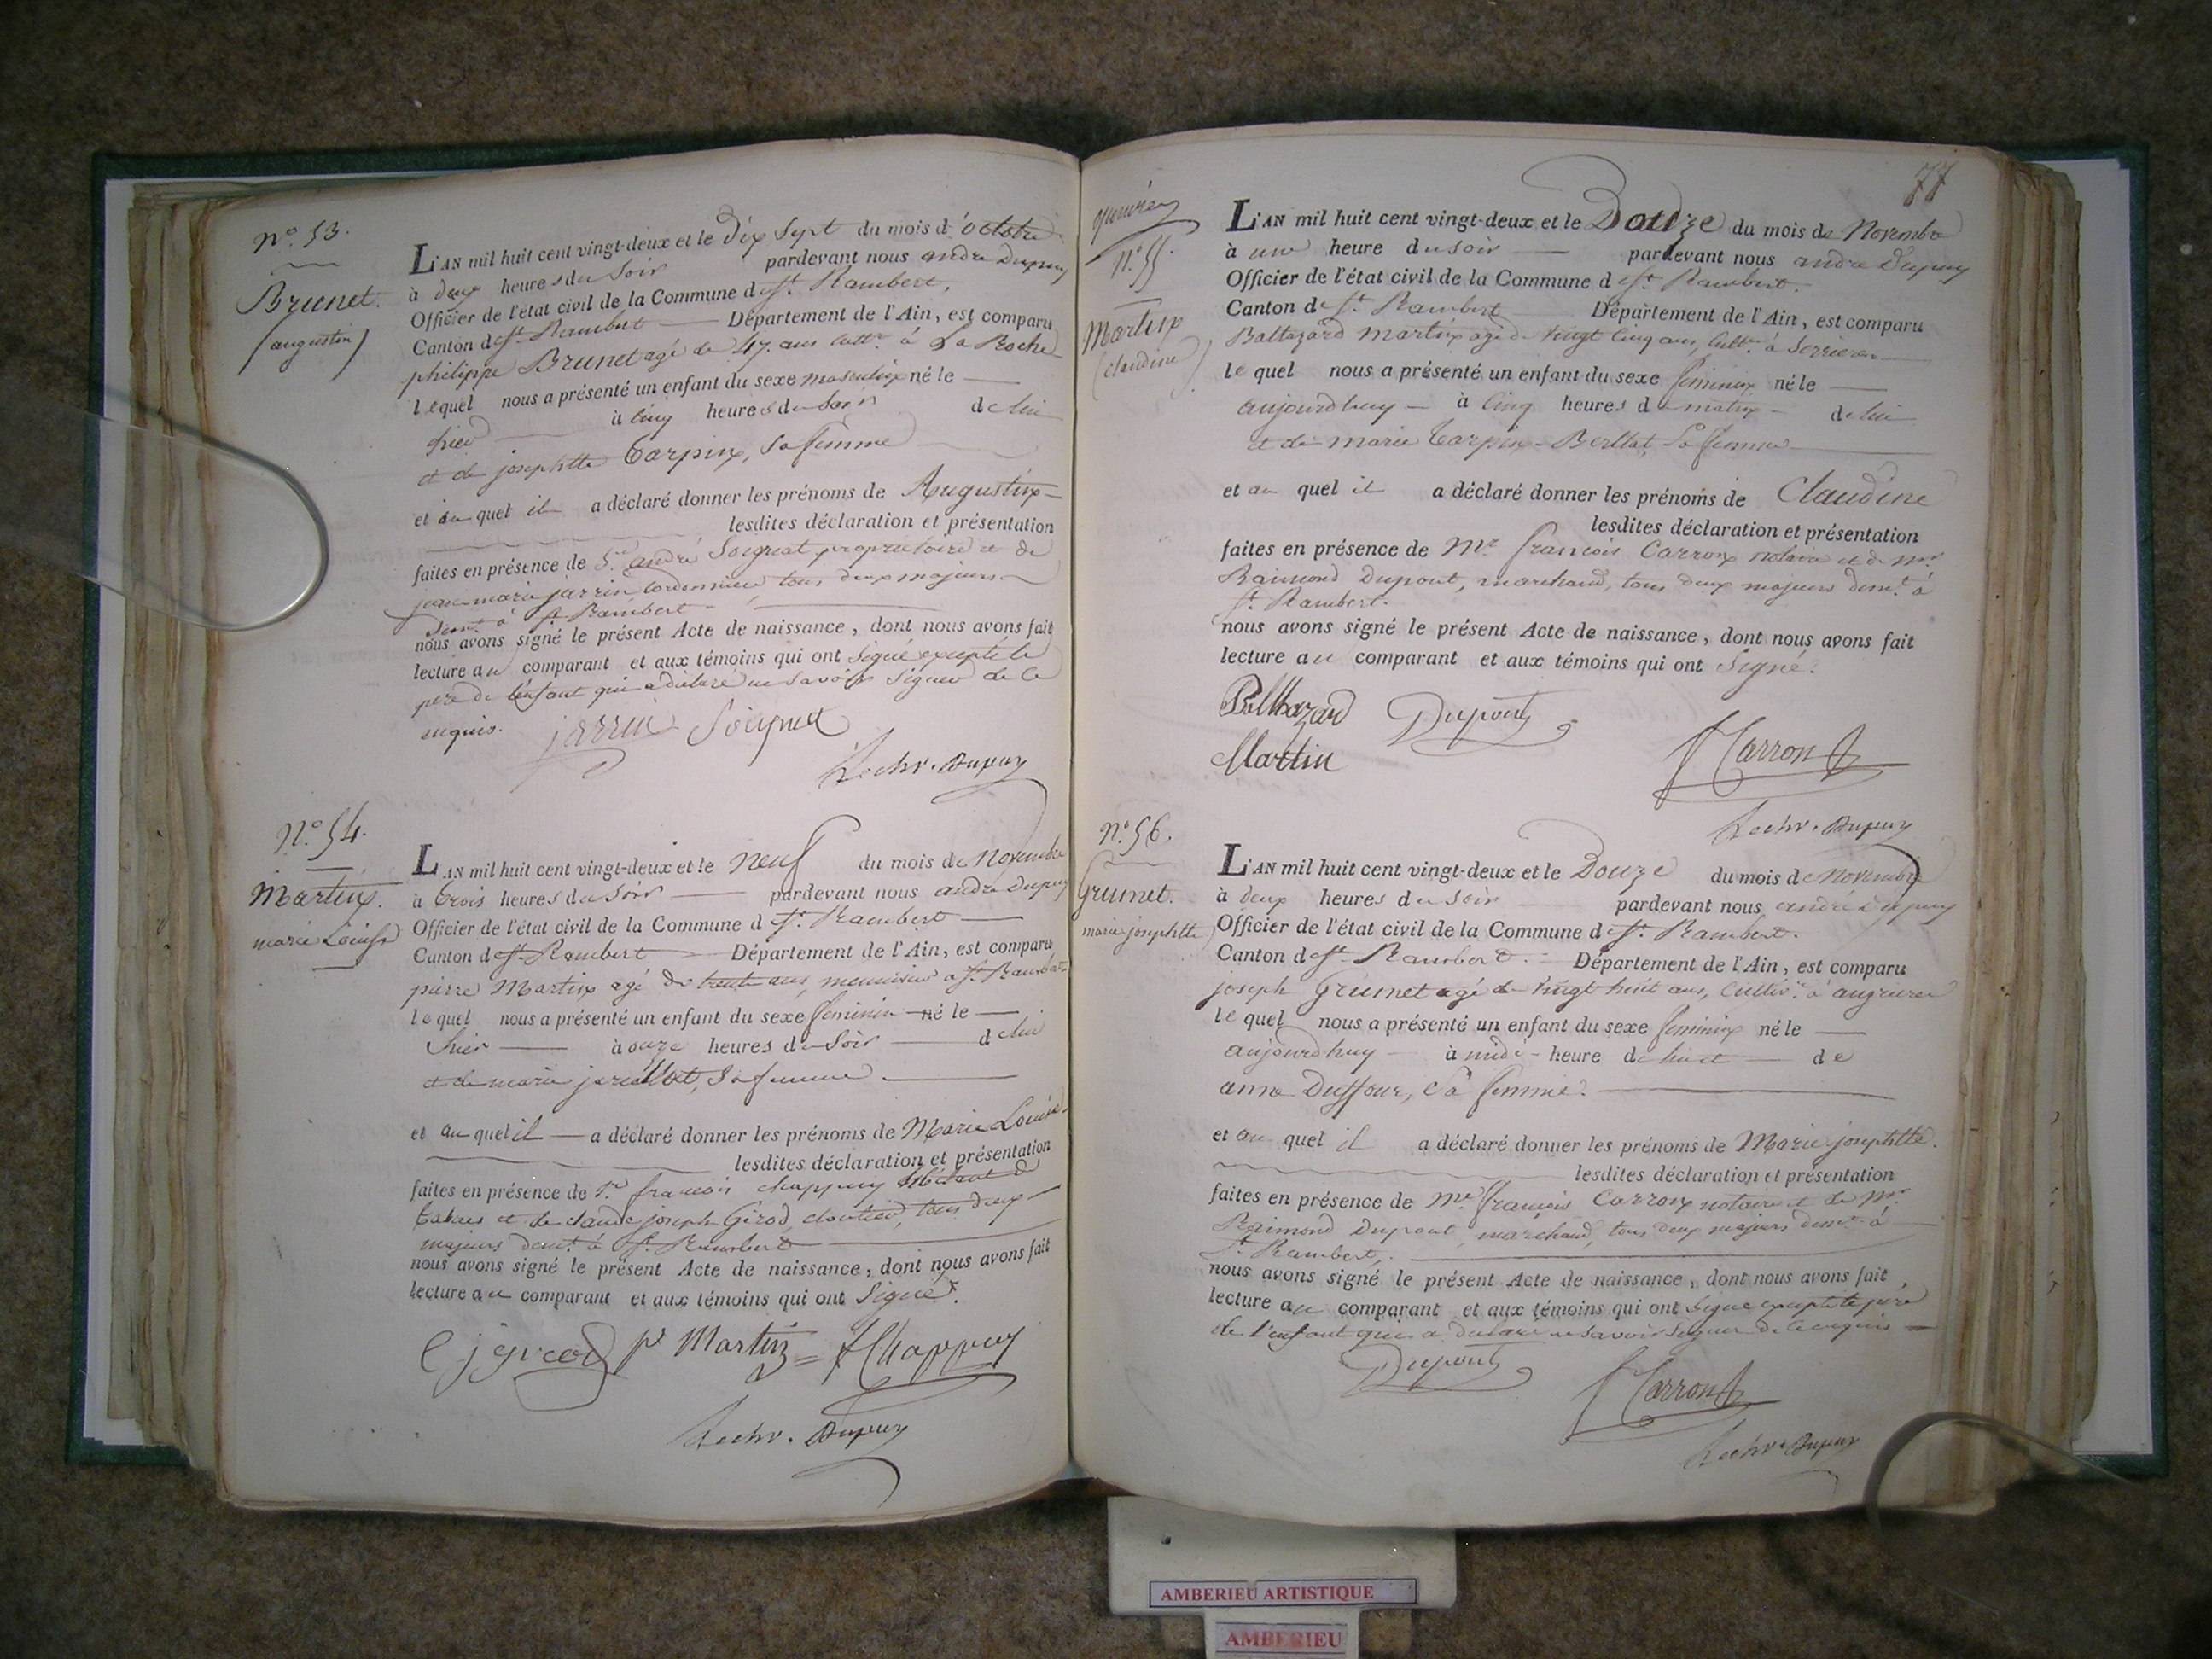 N.° 53.
Brunet.
(augustin)
L'AN mil huit cent vingt-deux et le dix sept du mois d'octobre
à deux heures du soir pardevant nous andré Dupuy
Officier de l'état civil de la Commune de St. Rambert,
Canton de St. Rambert Département de l'Ain, est comparu
philippe Brunet agé de 47. ans cultr. à La Roche
lequel nous a présenté un enfant du sexe masculin né le
hier à cinq heures du soir de lui
et de josephtte Tarpin, sa femme
et au quel il a déclaré donner les prénoms de Augustin
lesdites déclaration et présentation
faites en présence de Sr. andré Soignat propriétaire et de
jean marie jarrin, cordonnier, tous deux majeurs
demt. à St. Rambert
nous avons signé le présent Acte de naissance, dont nous avons fait
lecture au comparant et aux témoins qui ont signé excepté le
pere de l'enfant qui a déclaré ne savoir signer de ce
enquis.
jarrin Soignat
Dupuy
N.° 54.
Martin.
marie Louise
L'AN mil huit cent vingt-deux et le neuf du mois de Novembre
à trois heures du soir pardevant nous andré Dupuy
Officier de l'état civil de la Commune de St. Rambert
Canton de St. Rambert Département de l'Ain, est comparu
pierre Martin agé de trente ans, menuisier a St. Rambert
lequel nous a présenté un enfant du sexe feminin né le
hier à onze heures du soir de lui
et de marie , sa femme
et au quel il a déclaré donner les prénoms de Marie Louise
lesdites déclaration et présentation
faites en présence de Sr. francois chappuy débitant de
tabacs et de claude joseph Girod, cloutier, tous deux
majeurs demt. à St. Rambert
nous avons signé le présent Acte de naissance, dont nous avons fait
lecture au comparant et aux témoins qui ont signé.
C j girod pr Martin = f Chappuy
Dupuy
77
N.° 55.
Martin
(claudine)
L'AN mil huit cent vingt-deux et le Douze du mois de Novembre
à une heure du soir pardevant nous andré Dupuy
Officier de l'état civil de la Commune de St. Rambert.
Canton de St. Rambert Département de l'Ain, est comparu
Baltazard Martin agé de vingt cinq ans, cultr. à Serrieres
lequel nous a présenté un enfant du sexe feminin né le
aujourdhuy à cinq heures de matin de lui
et de marie Tarpin-Berllat, sa femme
et au quel il a déclaré donner les prénoms de Claudine
lesdites déclaration et présentation
faites en présence de Mr. francois Carron notaire et de Mr.
Raimond Dupont, marchand, tous deux majeurs demt. à
St. Rambert.
nous avons signé le présent Acte de naissance, dont nous avons fait
lecture au comparant et aux témoins qui ont signé.
Balthazard Dupont
Martin f Carron
Dupuy
N.° 56.
Grumet.
marie josephtte
L'AN mil huit cent vingt-deux et le Douze du mois de Novembre
à deux heures du soir pardevant nous andré Dupuy
Officier de l'état civil de la Commune de St. Rambert.
Canton de St. Rambert Département de l'Ain, est comparu
joseph Grumet agé de vingt huit ans, cultivr. à angrieres
lequel nous a présenté un enfant du sexe feminin né le
aujourdhuy à midi heure de lui et de
anne Duffour, sa femme.
et au quel il a déclaré donner les prénoms de Marie josephtte.
lesdites déclaration et présentation
faites en présence de Mr. francois Carron notaire et de Mr.
Raimond Dupont, marchand, tous deux majeurs demt. à
St. Rambert,
nous avons signé le présent Acte de naissance, dont nous avons fait
lecture au comparant et aux témoins qui ont signé excepté le père
de l'enfant qui a déclaré ne savoir signer de ce enquis
Dupont f Carron
Dupuy
AMBERIEU ARTISTIQUE
AMBERIEU